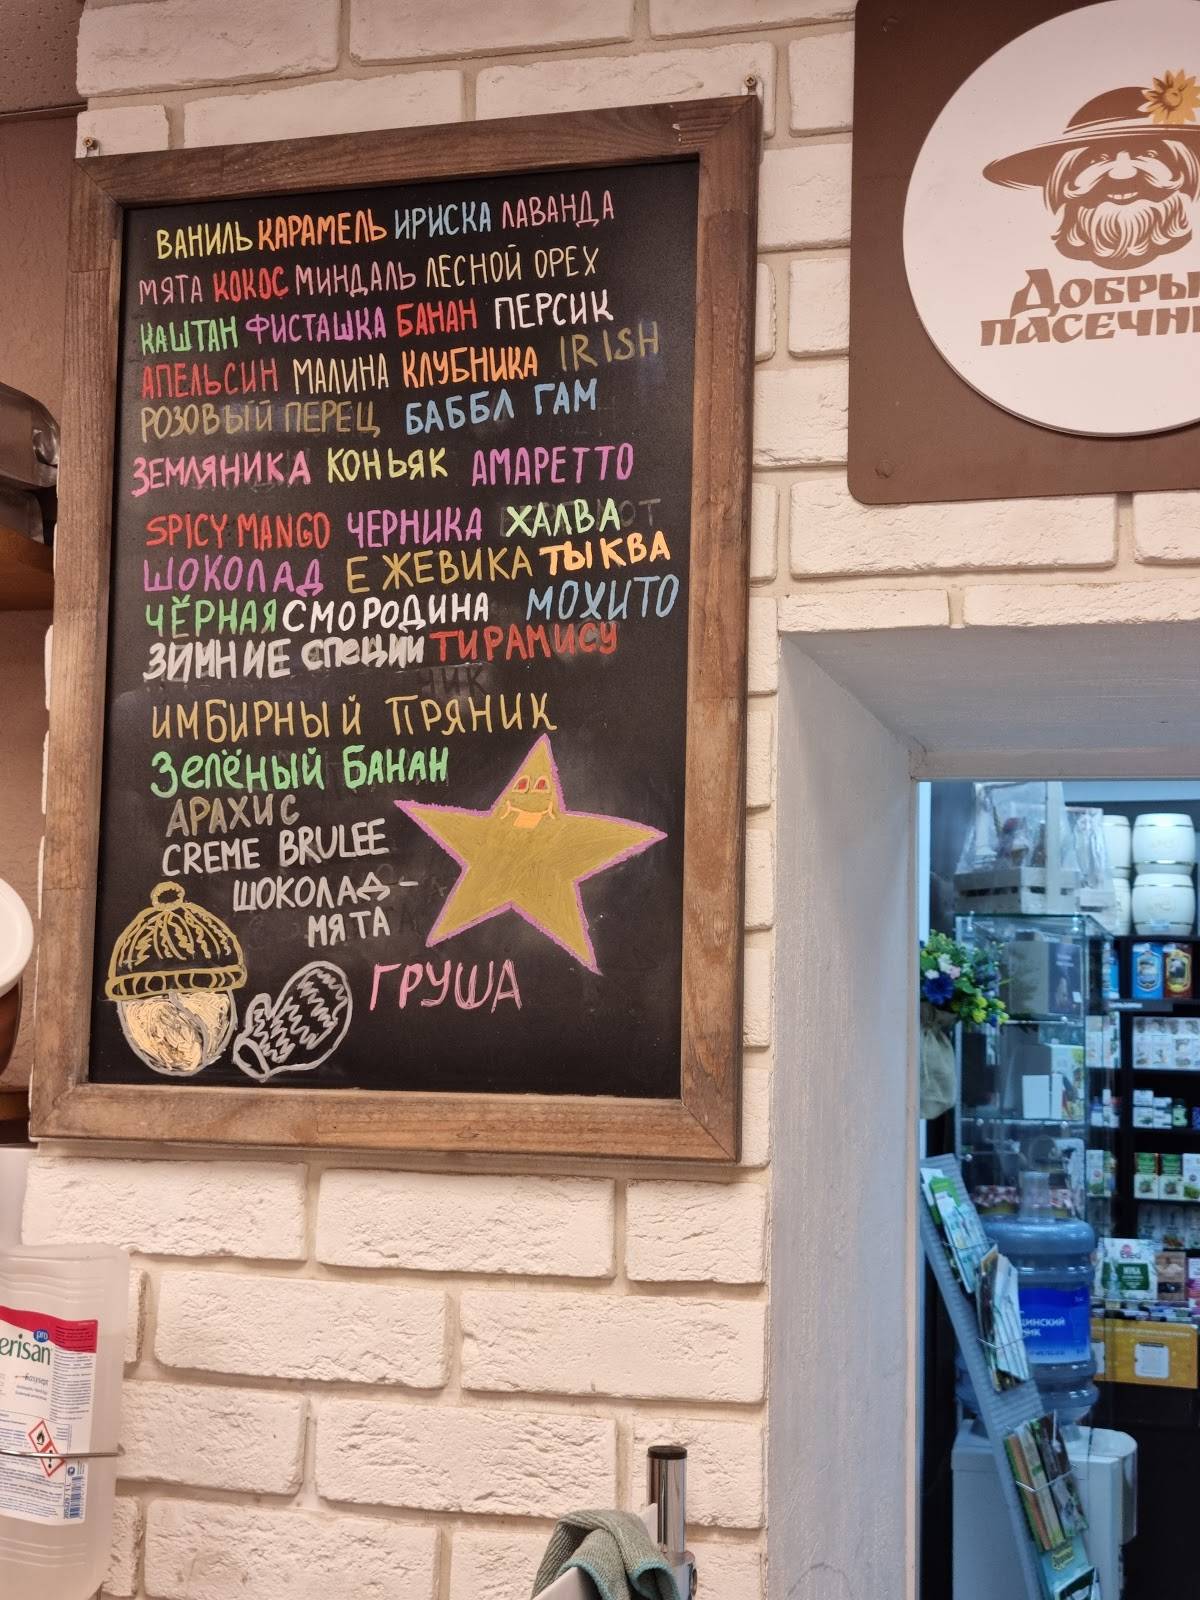 ВАНИЛЬ КАРАМЕЛЬ ИРИСКА ЛАВАНДА
МЯТА КОКОС МИНДАЛЬ ЛЕСНОЙ ОРЕХ
КАШТАН ФИСТАШКА БАНАН ПЕРСИК
АПЕЛЬСИН МАЛИНА КЛУБНИКА IRISH
РОЗОВЫЙ ПЕРЕЦ БАББЛ ГАМ
ЗЕМЛЯНИКА КОНЬЯК АМАРЕТТО
SPICY MANGO ЧЕРНИКА ХАЛВА
ШОКОЛАД ЕЖЕВИКА ТЫКВА
ЧЁРНАЯ СМОРОДИНА МОХИТО
ЗИМНИЕ СПЕЦИИ ТИРАМИСУ
ИМБИРНЫЙ ПРЯНИК
ЗЕЛЁНЫЙ БАНАН
АРАХИС
CREME BRULEE
ШОКОЛАД-
МЯТА
ГРУША
ДОБРЫ
ПАСЕЧН
erisan
pro
Easysept